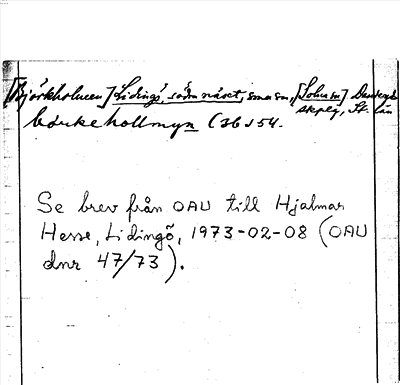 [Björkholmen] Lidingö, södra näset, sma sn, [Solna sn] Danderyds
skplg, St. län
börkehollmyn C36 s 54.
Se brev från OAU till Hjalmar
Hesse, Lidingö, 1973-02-08 (OAU
dnr 47/73).